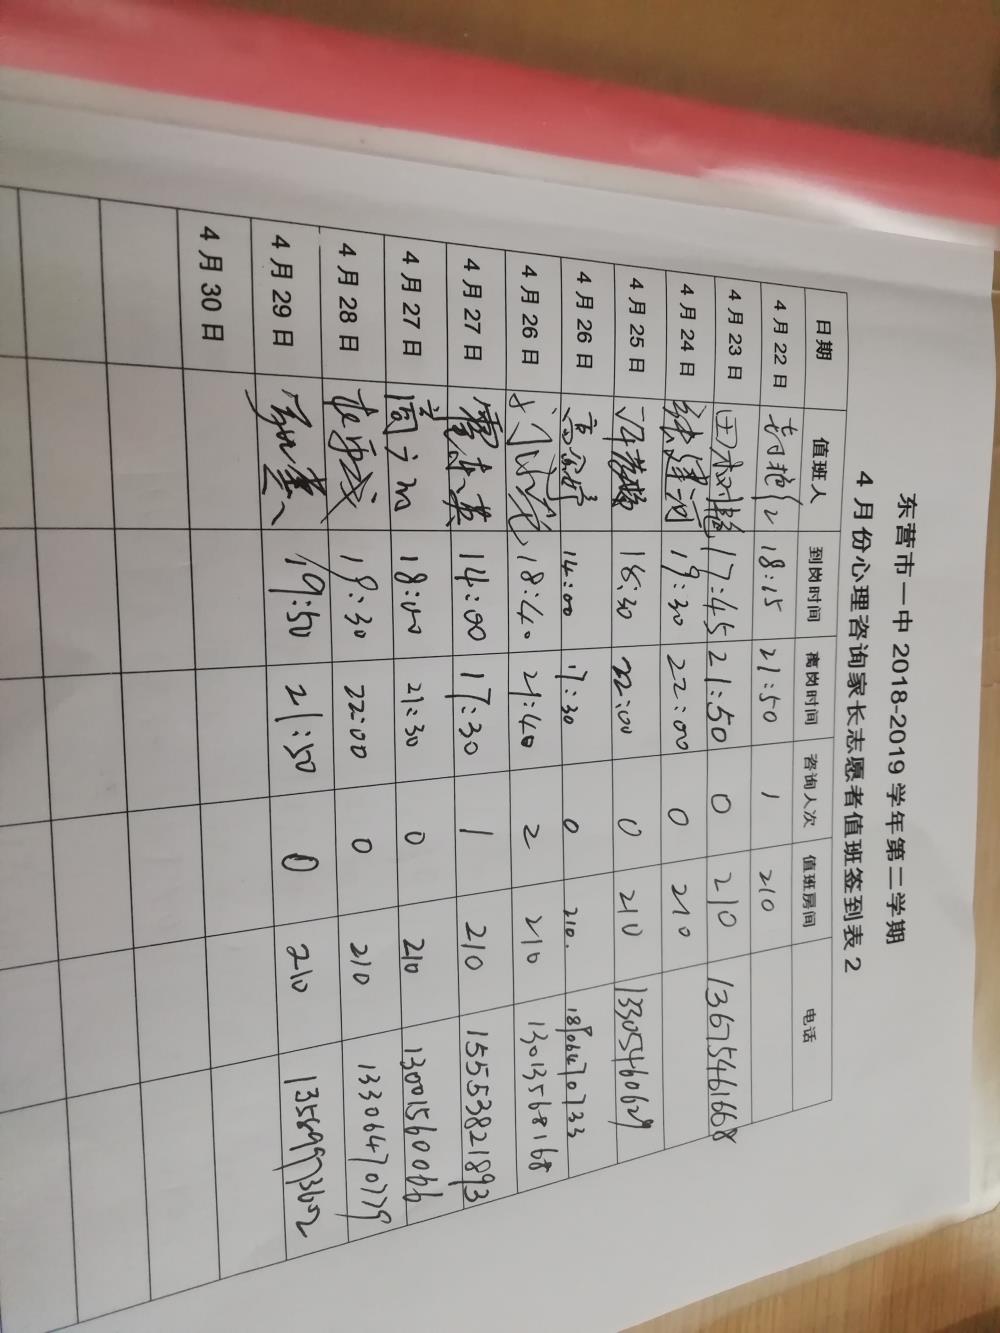 东营市一中 2018-2019 学年第二学期
4 月份心理咨询家长志愿者值班签到表 2
日期 值班人 到岗时间 离岗时间 咨询人次 值班房间 电话
4 月 22 日 18:15 21:50 1 210
4 月 23 日 田树艳 17:45 21:50 0 210 13675461668
4 月 24 日 张建河 19:30 22:00 0 210
4 月 25 日 18:30 22:00 0 210 13305460629
4 月 26 日 14:00 17:30 0 210. 18906470733
4 月 26 日 18:40 21:40 2 210 13013568168
4 月 27 日 14:00 17:30 1 210 15553821893
4 月 27 日 18:00 21:30 0 210 13001560066
4 月 28 日 19:30 22:00 0 210 13306470779
4 月 29 日 19:50 21:50 0 210
4 月 30 日